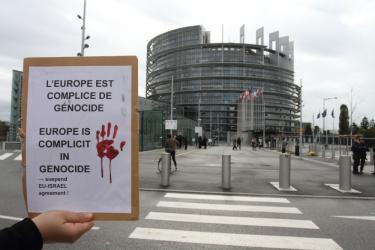 L'EUROPE EST
COMPLICE DE
GÉNOCIDE
EUROPE IS
COMPLICIT
IN
GENOCIDE
— suspend
EU-ISRAEL
agreement !